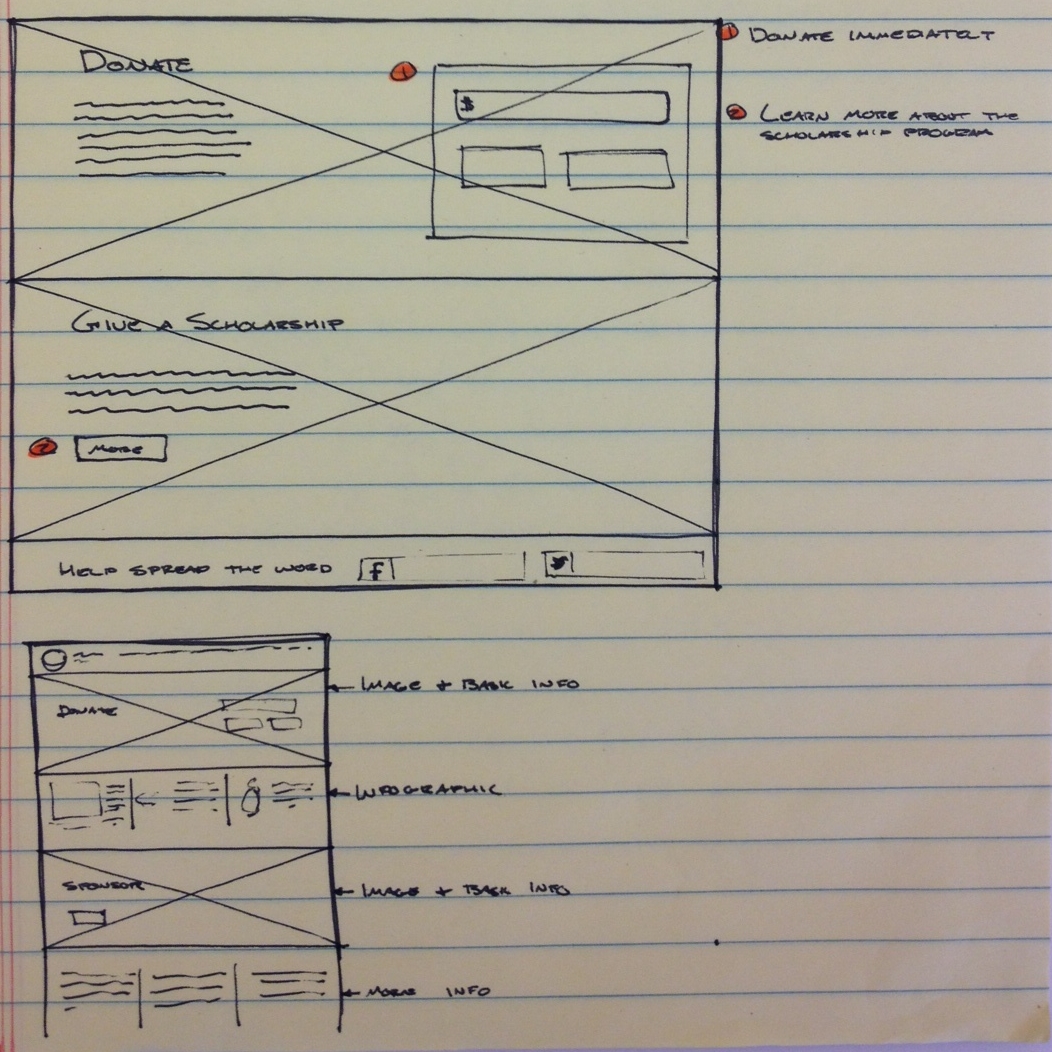 DONATE
1
$
1 DONATE IMMEDIATELY
2 LEARN MORE ABOUT THE
SCHOLARSHIP PROGRAM
GIVE A SCHOLARSHIP
2 MORE
HELP SPREAD THE WORD f
IMAGE + BASIC INFO
DONATE
INFOGRAPHIC
SPONSOR
IMAGE + BASIC INFO
MORE INFO